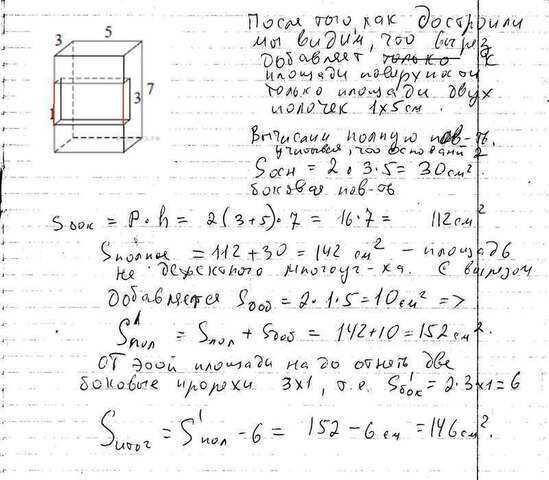 3 5
7
3
1
После того, как достроили
мы видим, что вырез
добавляет только к
площади поверхности
только площади двух
полочек 1x5 см.
Вычислим полную пов-ть
учитывая, что оснований 2
Sосн = 2 • 3 • 5 = 30 см².
боковая пов-ть
Sбок = P • h = 2(3+5) • 7 = 16 • 7 = 112 см²
Sполное = 112 + 30 = 142 см² – площадь
не многоуг-ка. С вырезом
Добавляется Sдоб = 2 • 1 • 5 = 10 см² =>
S¹пол = Sпол + Sдоб = 142 + 10 = 152 см².
От этой площади надо отнять две
боковые прорехи 3x1, т.е. S¹бок = 2 • 3x1 = 6
Sитог = S¹пол - 6 = 152 – 6 см = 146 см².